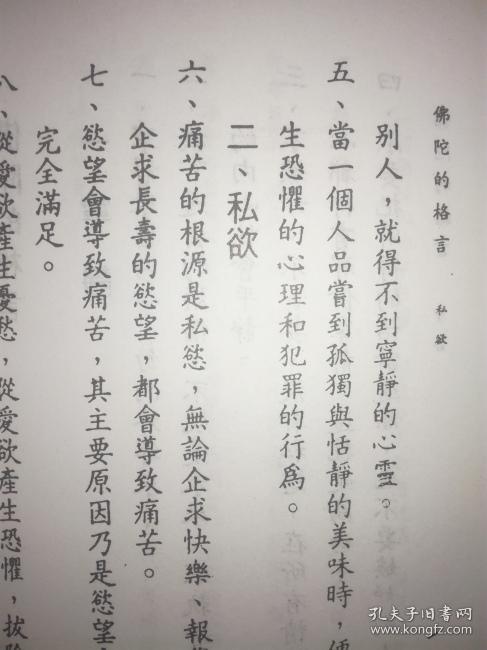 佛陀的格言 私欲
別人，就得不到寧靜的心雪。
五、當一個人品嘗到孤獨與恬靜的美味時，
生恐懼的心理和犯罪的行爲。
二、私欲
六、痛苦的根源是私慾，無論企求快樂、報
企求長壽的慾望，都會導致痛苦。
七、慾望會導致痛苦，其主要原因乃是慾望
完全滿足。
八、從愛欲產生憂愁，從愛欲產生恐懼，拔除
孔夫子旧書网
www.kongfz.com